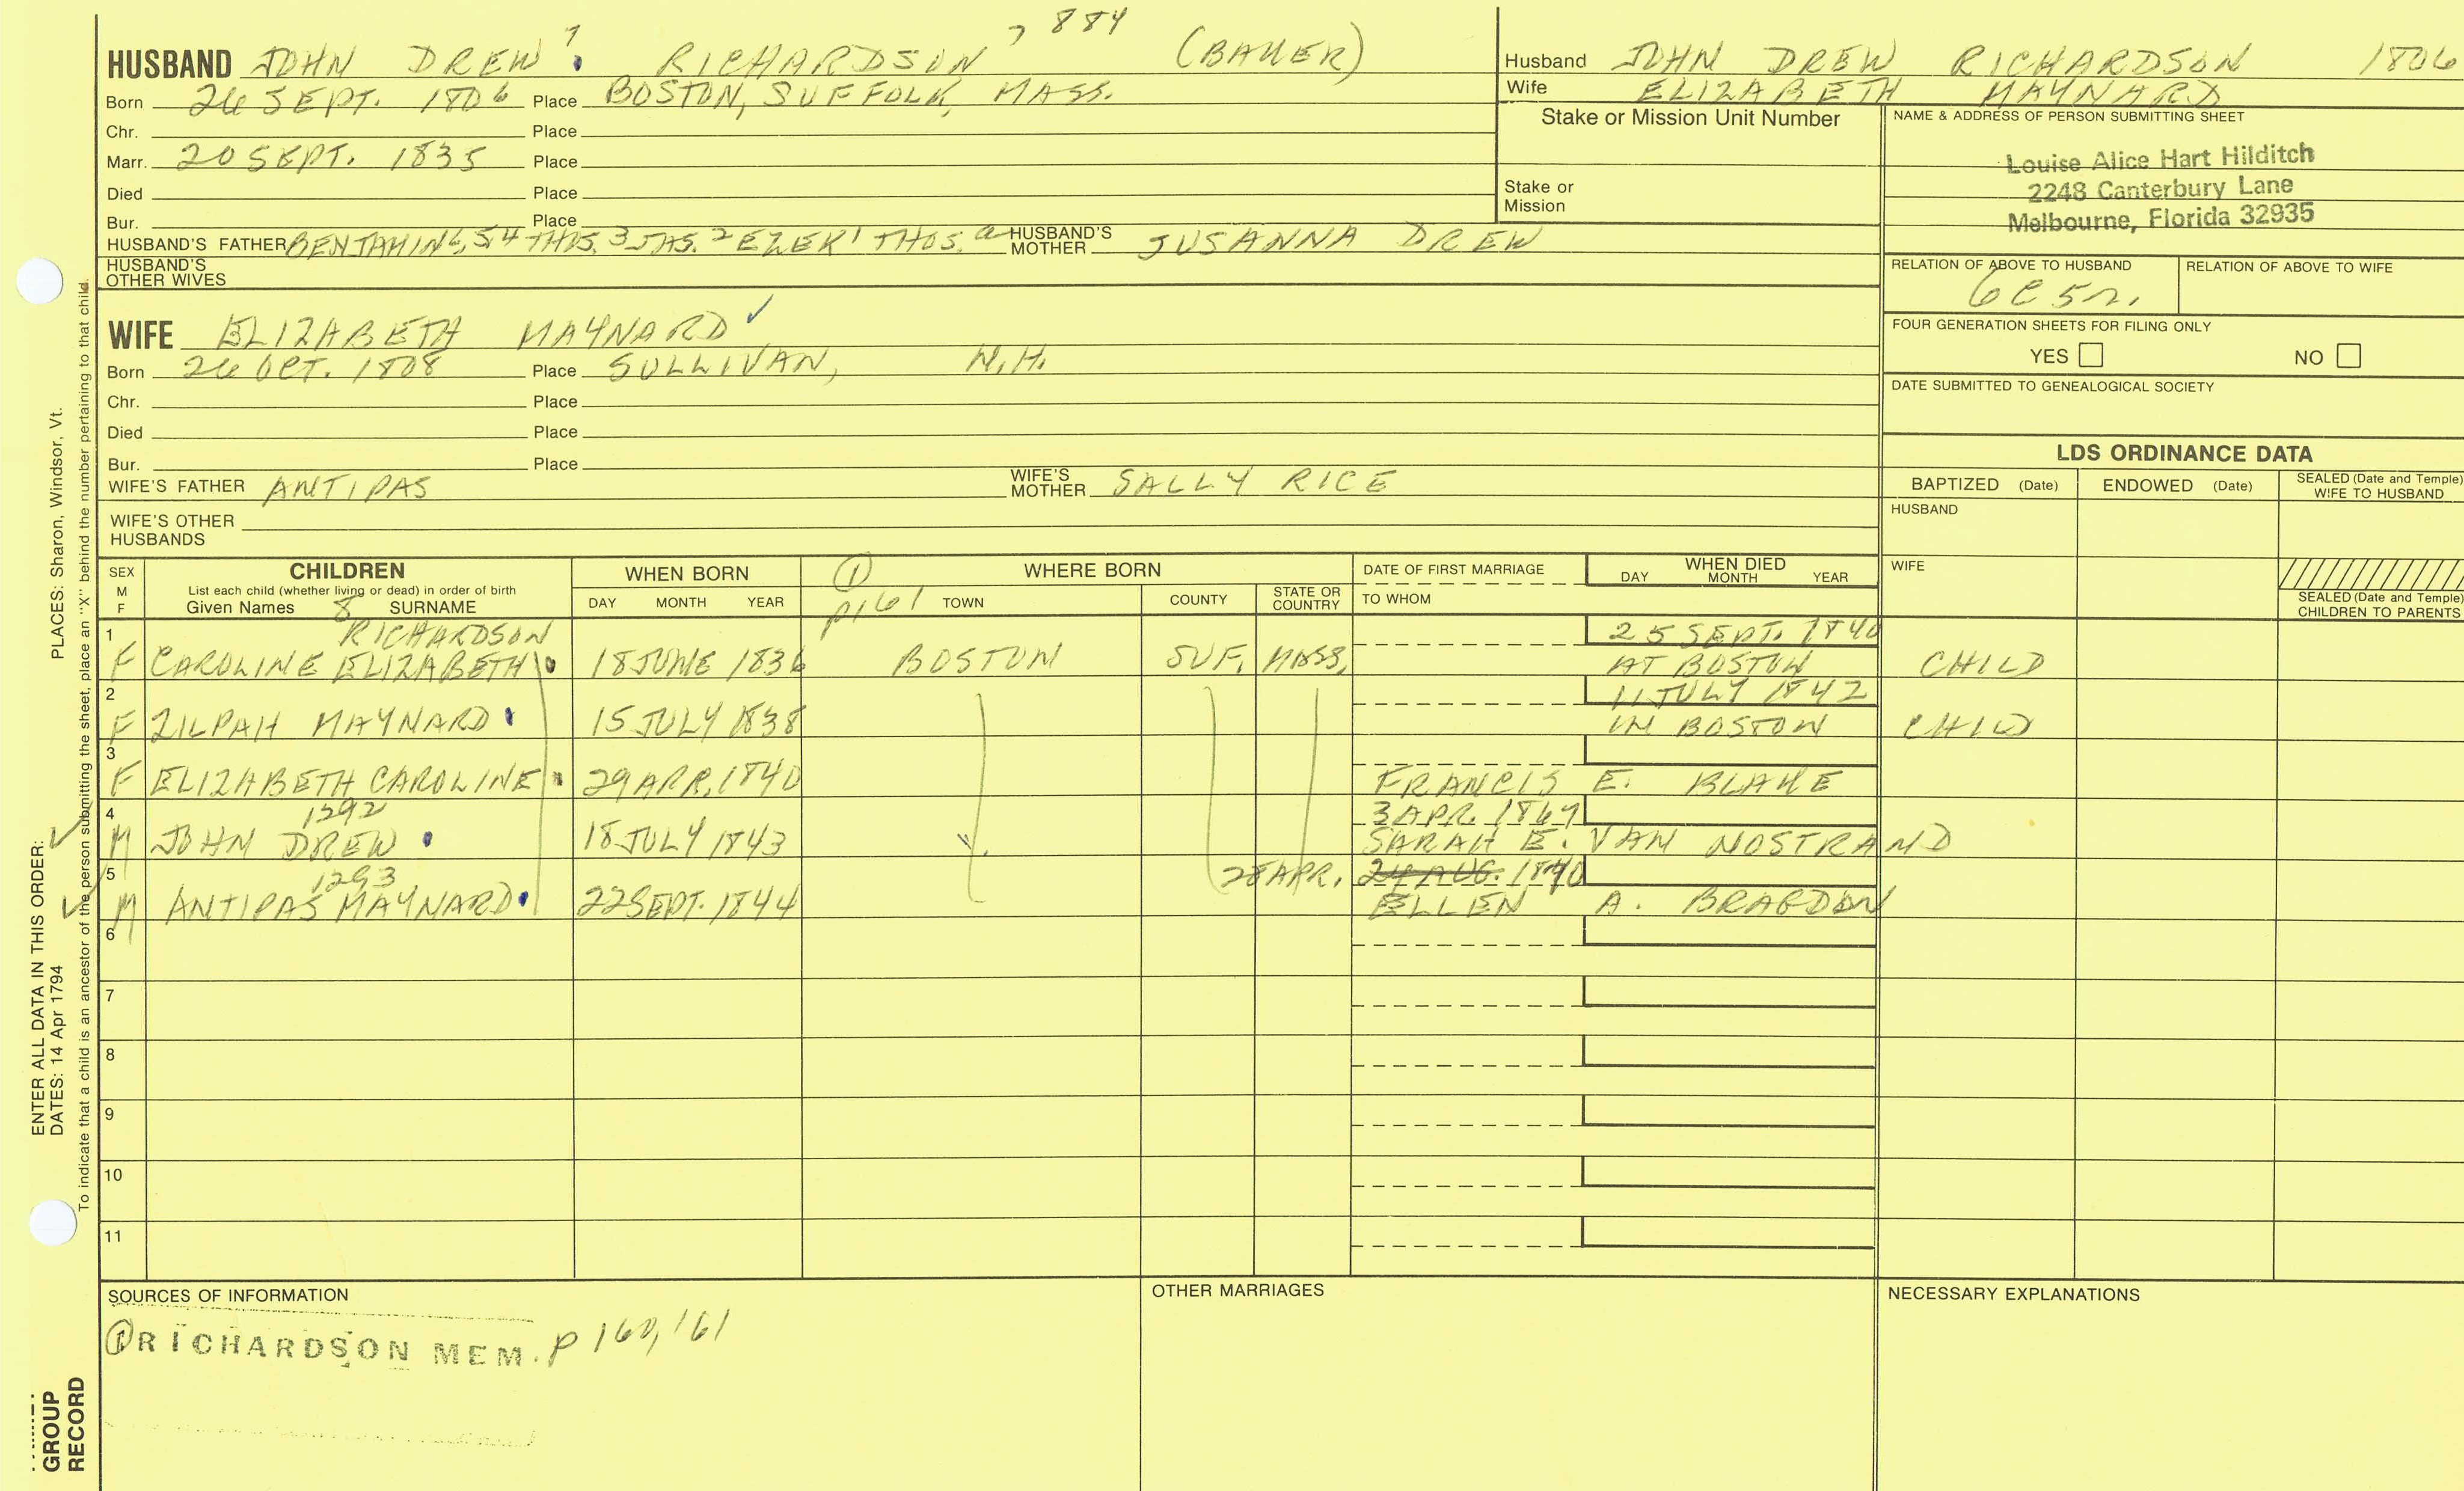 7 884
HUSBAND JOHN DREW 7 RICHARDSON (BAKER)
Born 26 SEPT. 1806 Place BOSTON, SUFFOLK, MASS.
Chr. Place
Marr. 20 SEPT. 1835 Place
Died Place
Bur. Place
HUSBAND'S FATHER BENJAMIN 6, 5 4 THOS. 3 JAS. 2 EZEK 1 THOS. a HUSBAND'S MOTHER SUSANNA DREW
HUSBAND'S OTHER WIVES
Husband JOHN DREW RICHARDSON 1806
Wife ELIZABETH MAYNARD
Stake or Mission Unit Number
Stake or
Mission
NAME & ADDRESS OF PERSON SUBMITTING SHEET
Louise Alice Hart Hilditch
2248 Canterbury Lane
Melbourne, Florida 32935
RELATION OF ABOVE TO HUSBAND RELATION OF ABOVE TO WIFE
6C5R.
FOUR GENERATION SHEETS FOR FILING ONLY
YES NO
DATE SUBMITTED TO GENEALOGICAL SOCIETY
WIFE ELIZABETH MAYNARD ✓
Born 26 OCT. 1808 Place SULLIVAN, N.H.
Chr. Place
Died Place
Bur. Place
WIFE'S FATHER ANTIPAS WIFE'S MOTHER SALLY RICE
WIFE'S OTHER
HUSBANDS
LDS ORDINANCE DATA
BAPTIZED (Date) ENDOWED (Date) SEALED (Date and Temple) WIFE TO HUSBAND
HUSBAND
WIFE
SEALED (Date and Temple)
CHILDREN TO PARENTS
SEX M F CHILDREN WHEN BORN ① WHERE BORN DATE OF FIRST MARRIAGE WHEN DIED
List each child (whether living or dead) in order of birth
Given Names 8 SURNAME DAY MONTH YEAR p161 TOWN COUNTY STATE OR COUNTRY TO WHOM DAY MONTH YEAR
1 RICHARDSON 25 SEPT. 1840
F CAROLINE ELIZABETH 18 JUNE 1836 BOSTON SUF. MASS. AT BOSTON CHILD
2 11 JULY 1842
F ZILPAH MAYNARD 15 JULY 1838 IN BOSTON CHILD
3
F ELIZABETH CAROLINE 29 APR. 1840 FRANCIS E. BLAKE
4 1292 3 APR. 1867
✓ M JOHN DREW 18 JULY 1843 SARAH E. VAN NOSTRAND
5 1293 28 APR. 24 AUG. 1870
✓ M ANTIPAS MAYNARD 22 SEPT. 1844 ELLEN A. BRAGDON
6
7
8
9
10
11
SOURCES OF INFORMATION
① RICHARDSON MEM. p 160, 161
OTHER MARRIAGES
NECESSARY EXPLANATIONS
ENTER ALL DATA IN THIS ORDER:
DATES: 14 Apr 1794 PLACES: Sharon, Windsor, Vt.
To indicate that a child is an ancestor of the person submitting the sheet, place an "X" behind the number pertaining to that child.
GROUP
RECORD